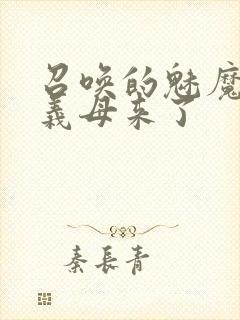 召唤的魅魔
義母来了
秦長青